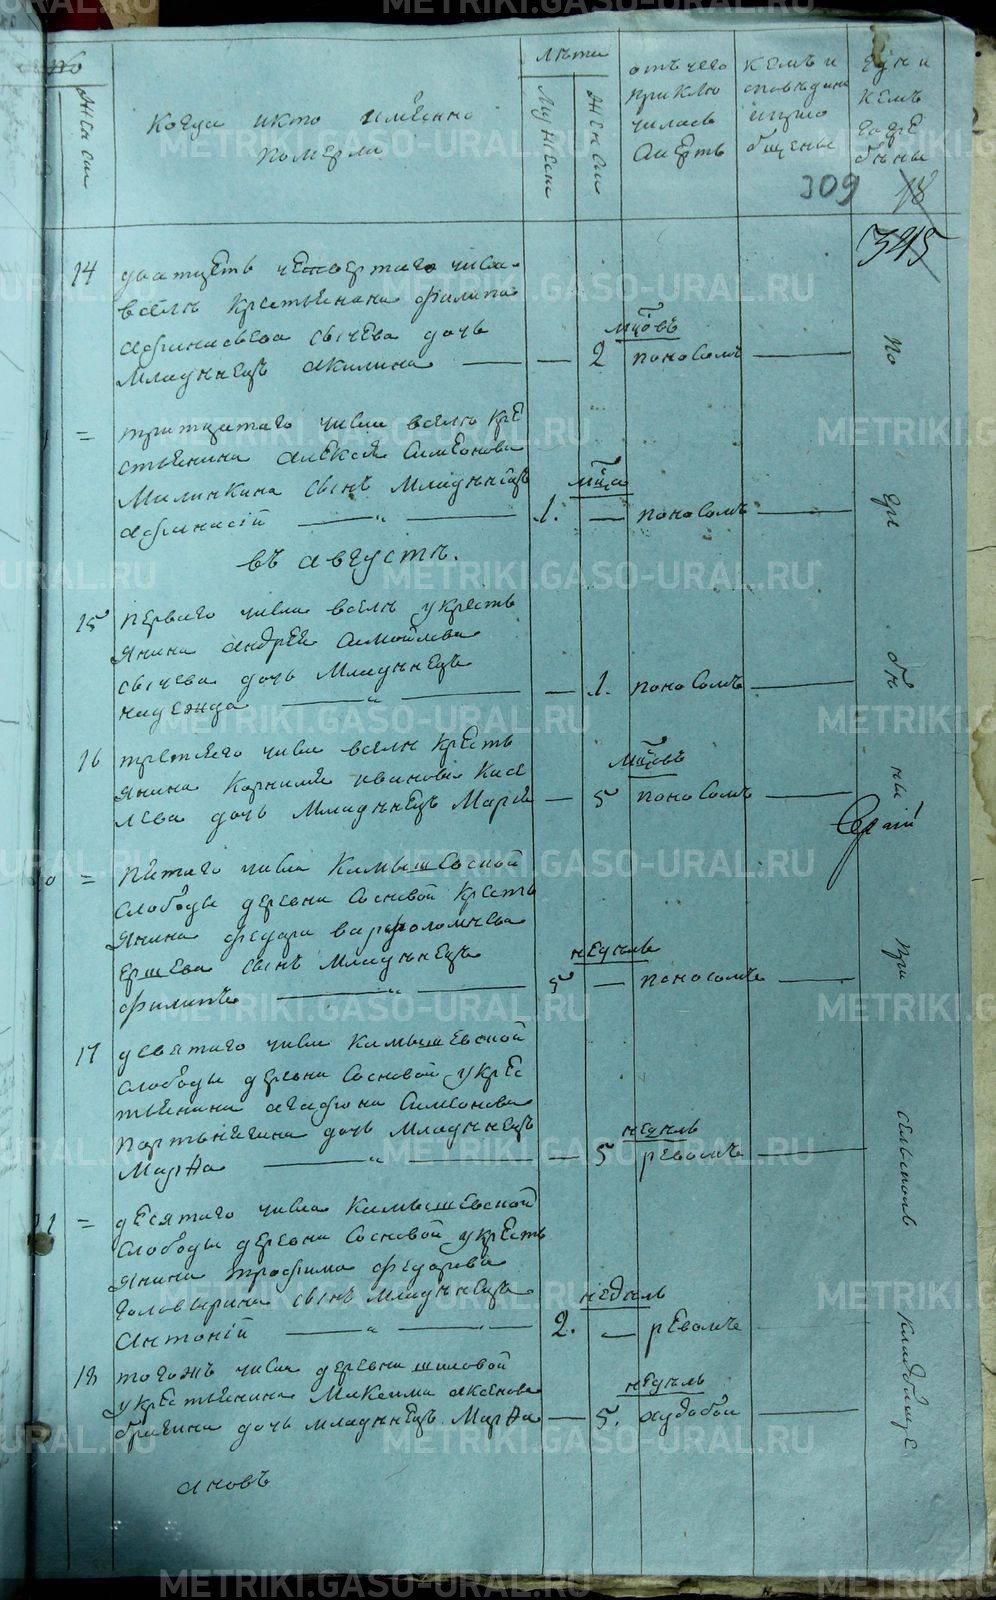 Женски
Когда и кто имѣнно
померли
Лѣта
Мужеск
Женски
отъ чего
приклю
чилась
смерть
кемъ и
сповѣдани
и прио
бщены
гдѣ и
кемъ
погре
бѣны
309
18
345
14
дватцеть четвертаго числа
в селѣ крестьянина филипа
афанасьева сычева дочь
младѣнецъ акилина
мцовъ
2 поносомъ
=
тритцатаго числа в селѣ кре
стьянина алексѣя Симеонова
Милинкина сынъ младѣнецъ
афанасій
мца
1. — поносомъ
въ августѣ.
15
перваго числа в селѣ у кресть
янина андрея Самойлова
сычева дочь младѣнецъ
надежда
— 1. поносомъ
16
третьяго числа в селѣ кресть
янина Корнилія иванова Кисе
лева дочь младѣнецъ Марія
мцовъ
— 5 поносомъ
=
пятаго числа Камышевской
слободы деревни Сосновой кресть
янина федора варфоломѣева
Ершева сынъ младѣнецъ
филипъ
недѣль
5 — поносомъ
17
девятаго числа Камышевской
слободы деревни Сосновой у крес
тьянина агафона Симеонова
Портнягина дочь младѣнецъ
Марѳа
недѣль
— 5 ревомъ
11 =
десятаго числа Камышевской
слободы деревни Сосновой у кресть
янина трофима федорова
Головырина сынъ младѣнецъ
Антоній
недѣль
2. — ревомъ
18
тогожъ числа деревни шиловой
у крестьянина Максима аксенова
брагина дочь младѣнецъ Марѳа
недѣль
— 5. худобой
По
гре
бѣ
ны
Сергій
при
сельскомъ
кладбище